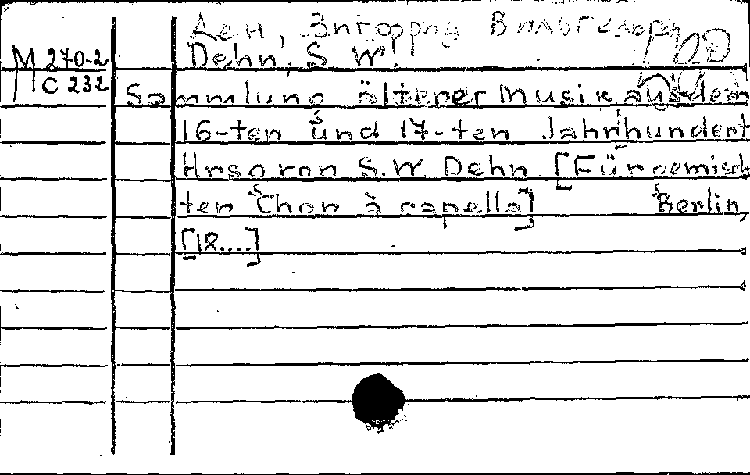 Ден, Зигфрид Вильгельм
М 270-2
Dehn, S. W.
С 232
Sammlung älterer Musik aus dem
16-ten und 17-ten Jahrhundert
Hrsg von S. W. Dehn [Für gemisch
ten Chor à capella] Berlin,
[18....]